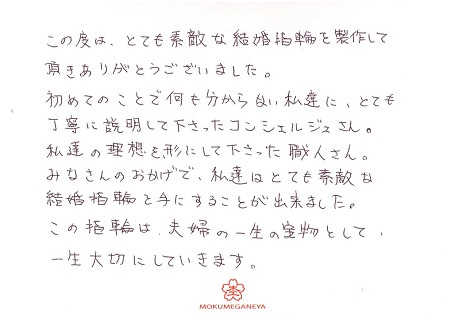 この度は、とても素敵な結婚指輪を製作して
頂きありがとうございました。
初めてのことで何も分からない私達に、とても
丁寧に説明して下さったコンシェルジュさん。
私達の理想を形にして下さった職人さん。
みなさんのおかげで、私達はとても素敵な
結婚指輪を手にすることが出来ました。
この指輪は、夫婦の一生の宝物として、
一生大切にしていきます。
MOKUMEGANEYA